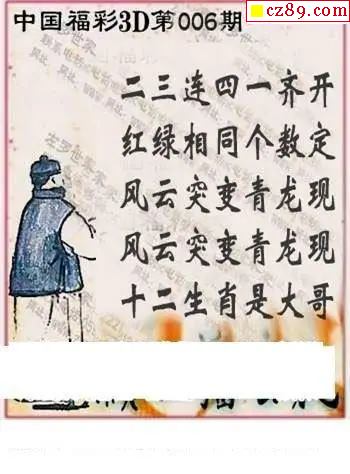 cz89.com
中国福彩3D第006期
二三连四一齐开
红绿相同个数定
风云突变青龙现
风云突变青龙现
十二生肖是大哥